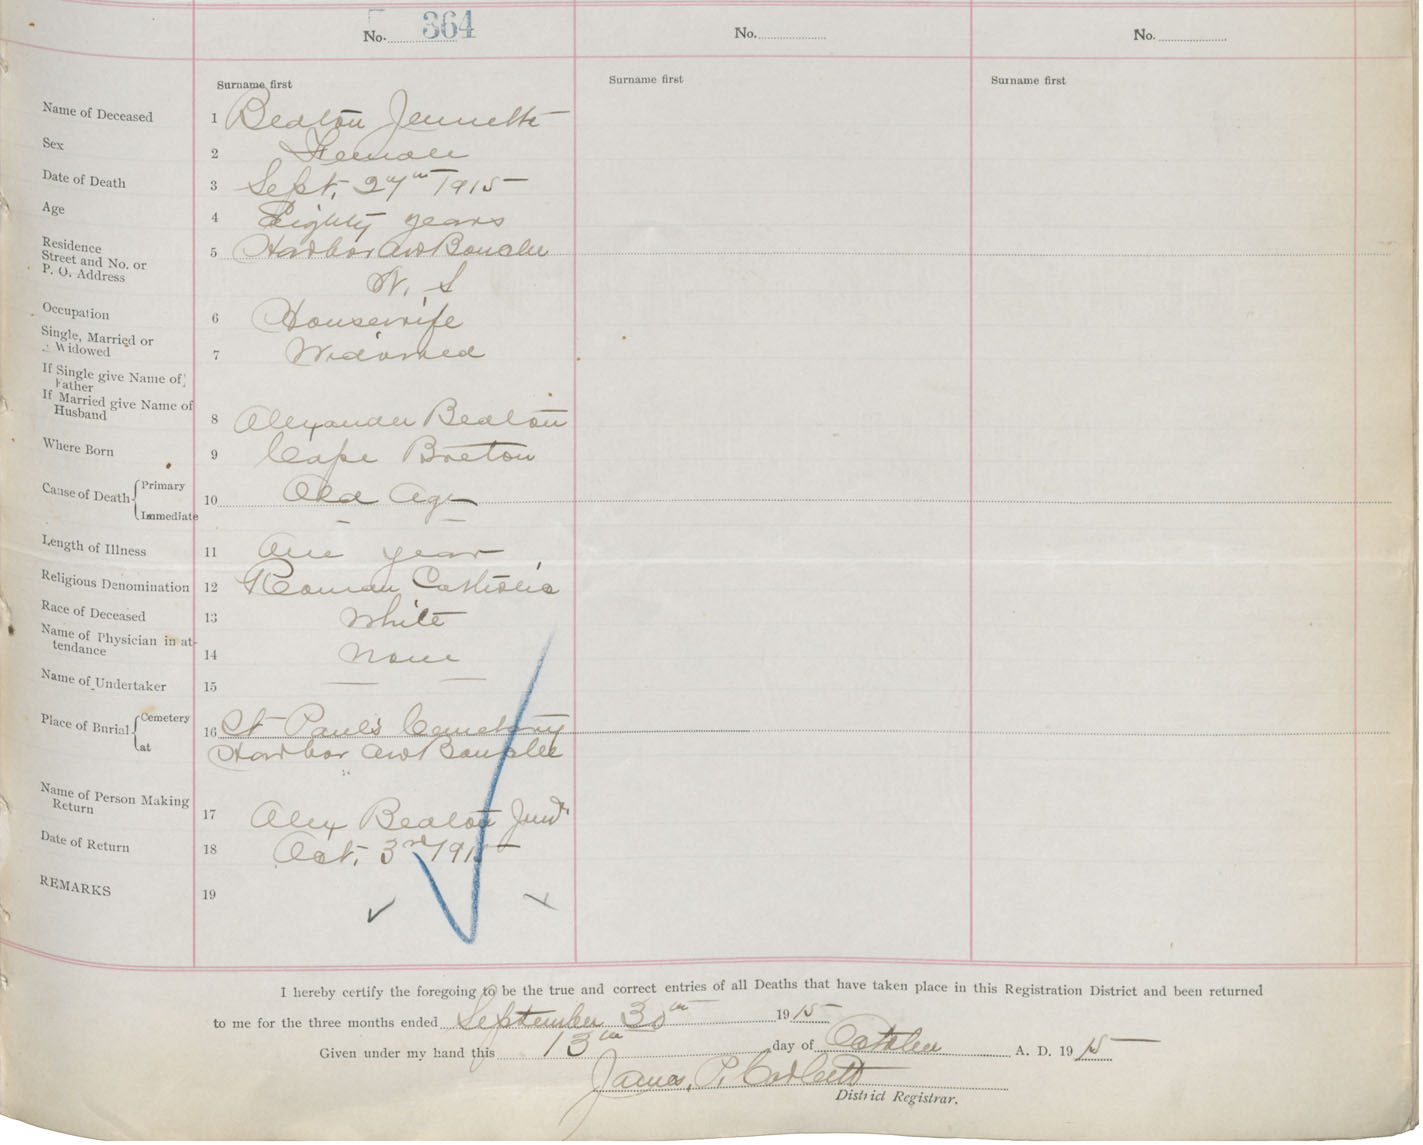 No. 364 No. No.
Surname first Surname first Surname first
Name of Deceased 1 Beaton Jennette
Sex 2 Female
Date of Death 3 Sept. 27th 1915
Age 4 Eighty years
Residence
Street and No. or
P. O. Address 5 Harbor au Bouche
N. S
Occupation 6 Housewife
Single, Married or
Widowed 7 Widowed
If Single give Name of
Father
If Married give Name of
Husband 8 Alexander Beaton
Where Born 9 Cape Breton
Cause of Death { Primary
Immediate 10 Old Age
Length of Illness 11 One year
Religious Denomination 12 Roman Catholic
Race of Deceased 13 White
Name of Physician in at-
tendance 14 None
Name of Undertaker 15
Place of Burial { Cemetery
at 16 St Paul's Cemetery
Harbor au Bouche
Name of Person Making
Return 17 Alex Beaton Junr
Date of Return 18 Oct. 3rd 1915
REMARKS 19
I hereby certify the foregoing to be the true and correct entries of all Deaths that have taken place in this Registration District and been returned
to me for the three months ended September 30th 1915
Given under my hand this 13th day of October A. D. 1915
James P. Corbett
District Registrar.